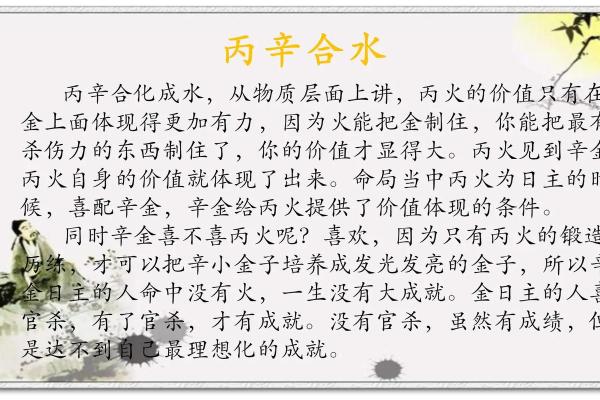 丙辛合水
丙辛合化成水，从物质层面上讲，丙火的价值只有在
金上面体现得更加有力，因为火能把金制住，你能把最有
杀伤力的东西制住了，你的价值才显得大。丙火见到辛金
丙火自身的价值就体现了出来。命局当中丙火为日主的时
候，喜配辛金，辛金给丙火提供了价值体现的条件。
同时辛金喜不喜丙火呢？喜欢，因为只有丙火的锻造
厉练，才可以把辛小金子培养成发光发亮的金子，所以辛
金日主的人命中没有火，一生没有大成就。金日主的人喜
官杀，有了官杀，才有成就。没有官杀，虽然有成绩，但
是达不到自己最理想化的成就。